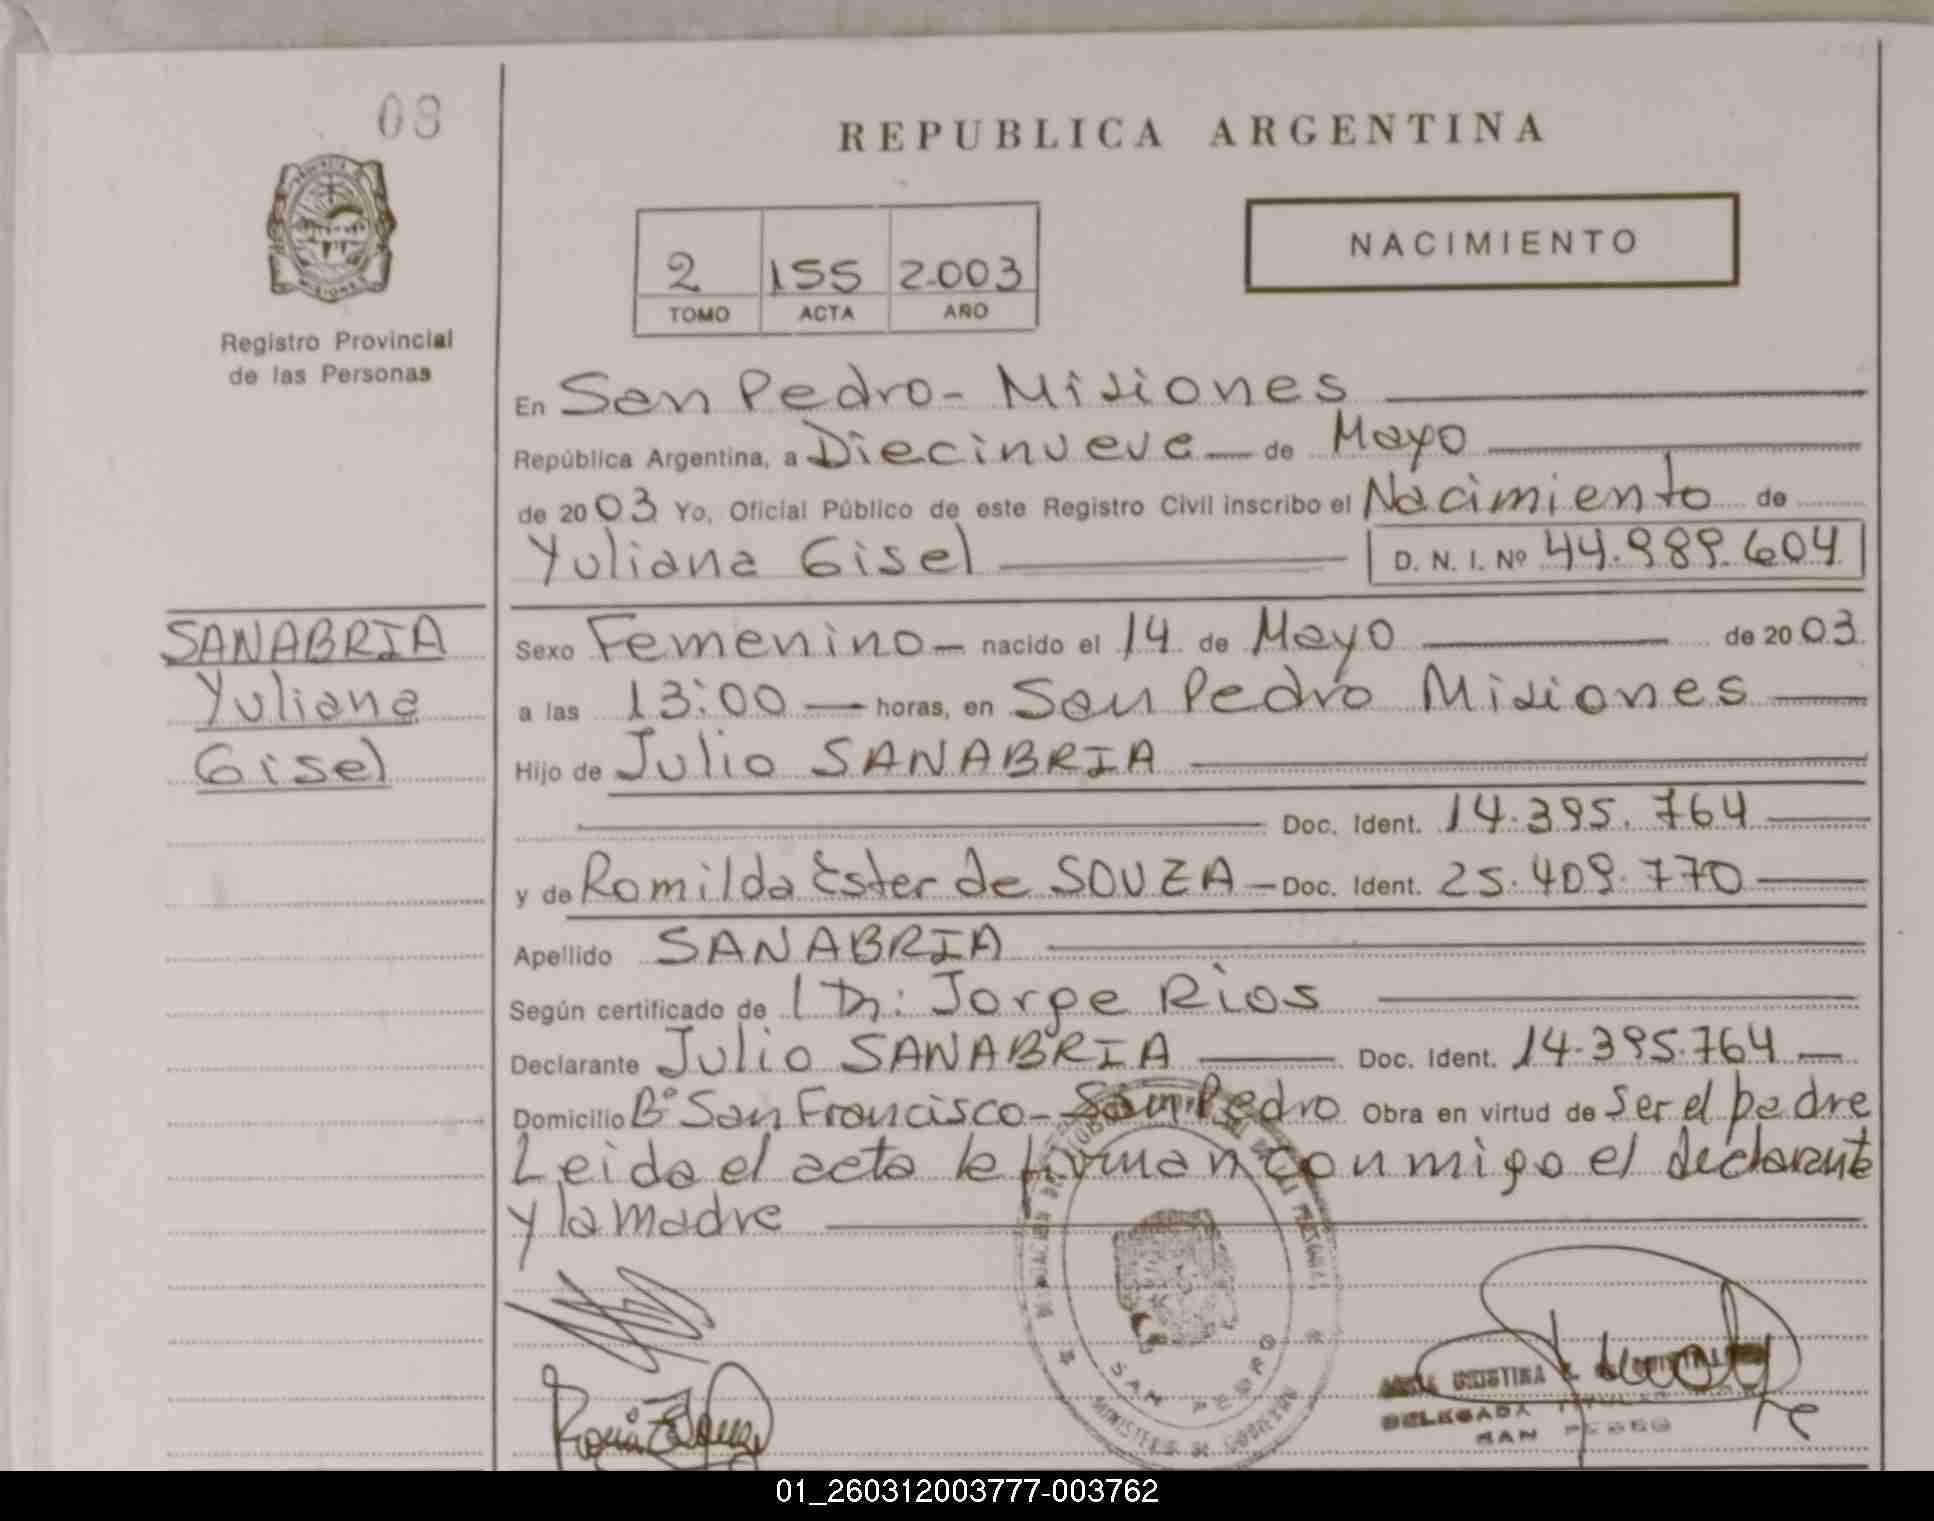 08
REPUBLICA ARGENTINA
NACIMIENTO
2 155 2.003
TOMO ACTA AÑO
Registro Provincial
de las Personas
En San Pedro - Misiones
República Argentina, a Diecinueve de Mayo
de 2003 Yo, Oficial Público de este Registro Civil inscribo el Nacimiento de
Yuliana Gisel D. N. I. Nº 44.989.604
SANABRIA
Yuliana
Gisel
Sexo Femenino nacido el 14 de Mayo de 2003
a las 13:00 horas, en San Pedro Misiones
Hijo de Julio SANABRIA
Doc. Ident. 14.395.764
y de Romilda Ester de SOUZA Doc. Ident. 25.409.770
Apellido SANABRIA
Según certificado de Dr: Jorge Rios
Declarante Julio SANABRIA Doc. Ident. 14.395.764
Domicilio Bº San Francisco - San Pedro Obra en virtud de ser el padre
Leida el acta la firman conmigo el declarante
y la madre
SAN PEDRO
MINISTERIO DE GOBIERNO
CRISTINA
DELEGADA TITULAR
SAN PEDRO
01_260312003777-003762